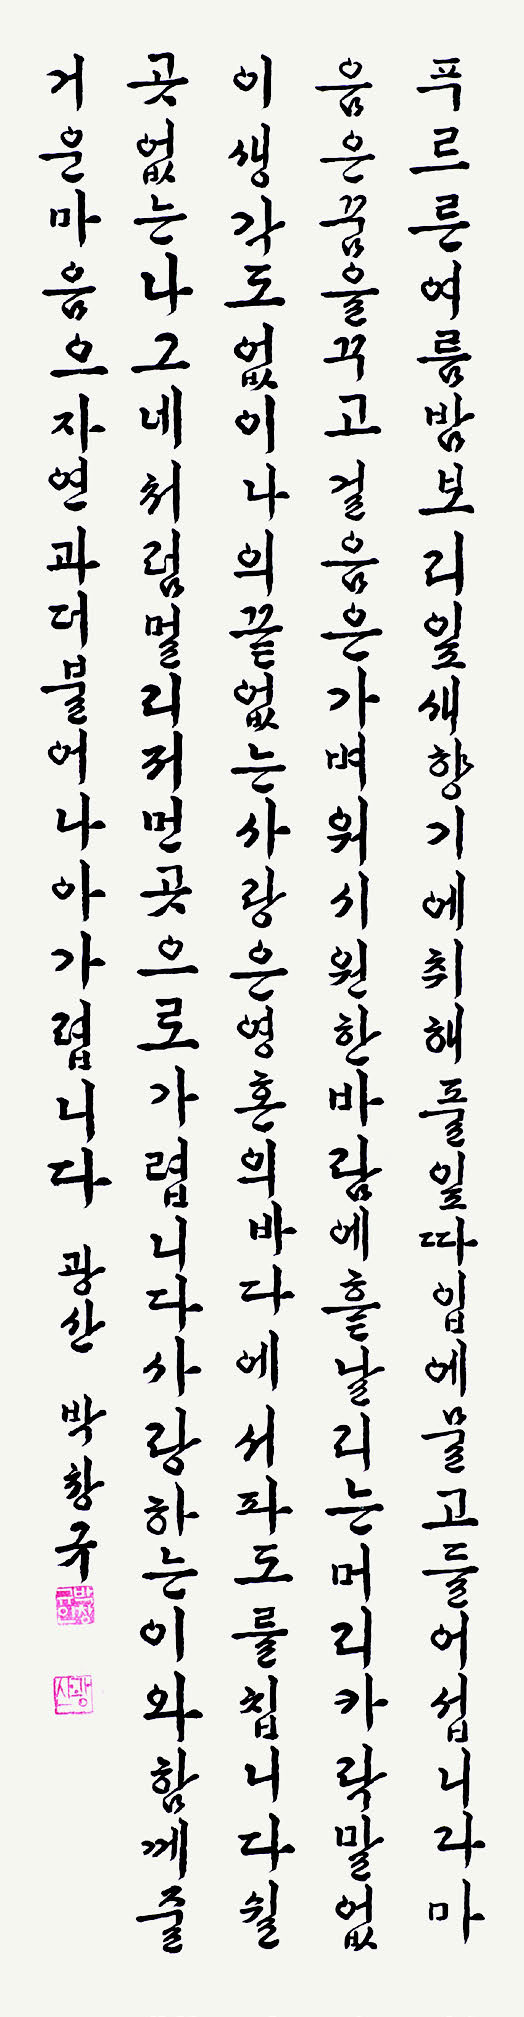 푸르른여름밤보리잎새향기에취해풀잎따입에물고들어섭니라마
음은꿈을꾸고걸음은가벼워시원한바람에흩날리는머리카락말없
이생각도없이나의끝없는사랑은영혼의바다에서파도를칩니다쉴
곳없는나그네처럼멀리저먼곳으로가렵니다사랑하는이와함께줄
거운마음으자연과더불어나아가렵니다 광산 박창규
광산